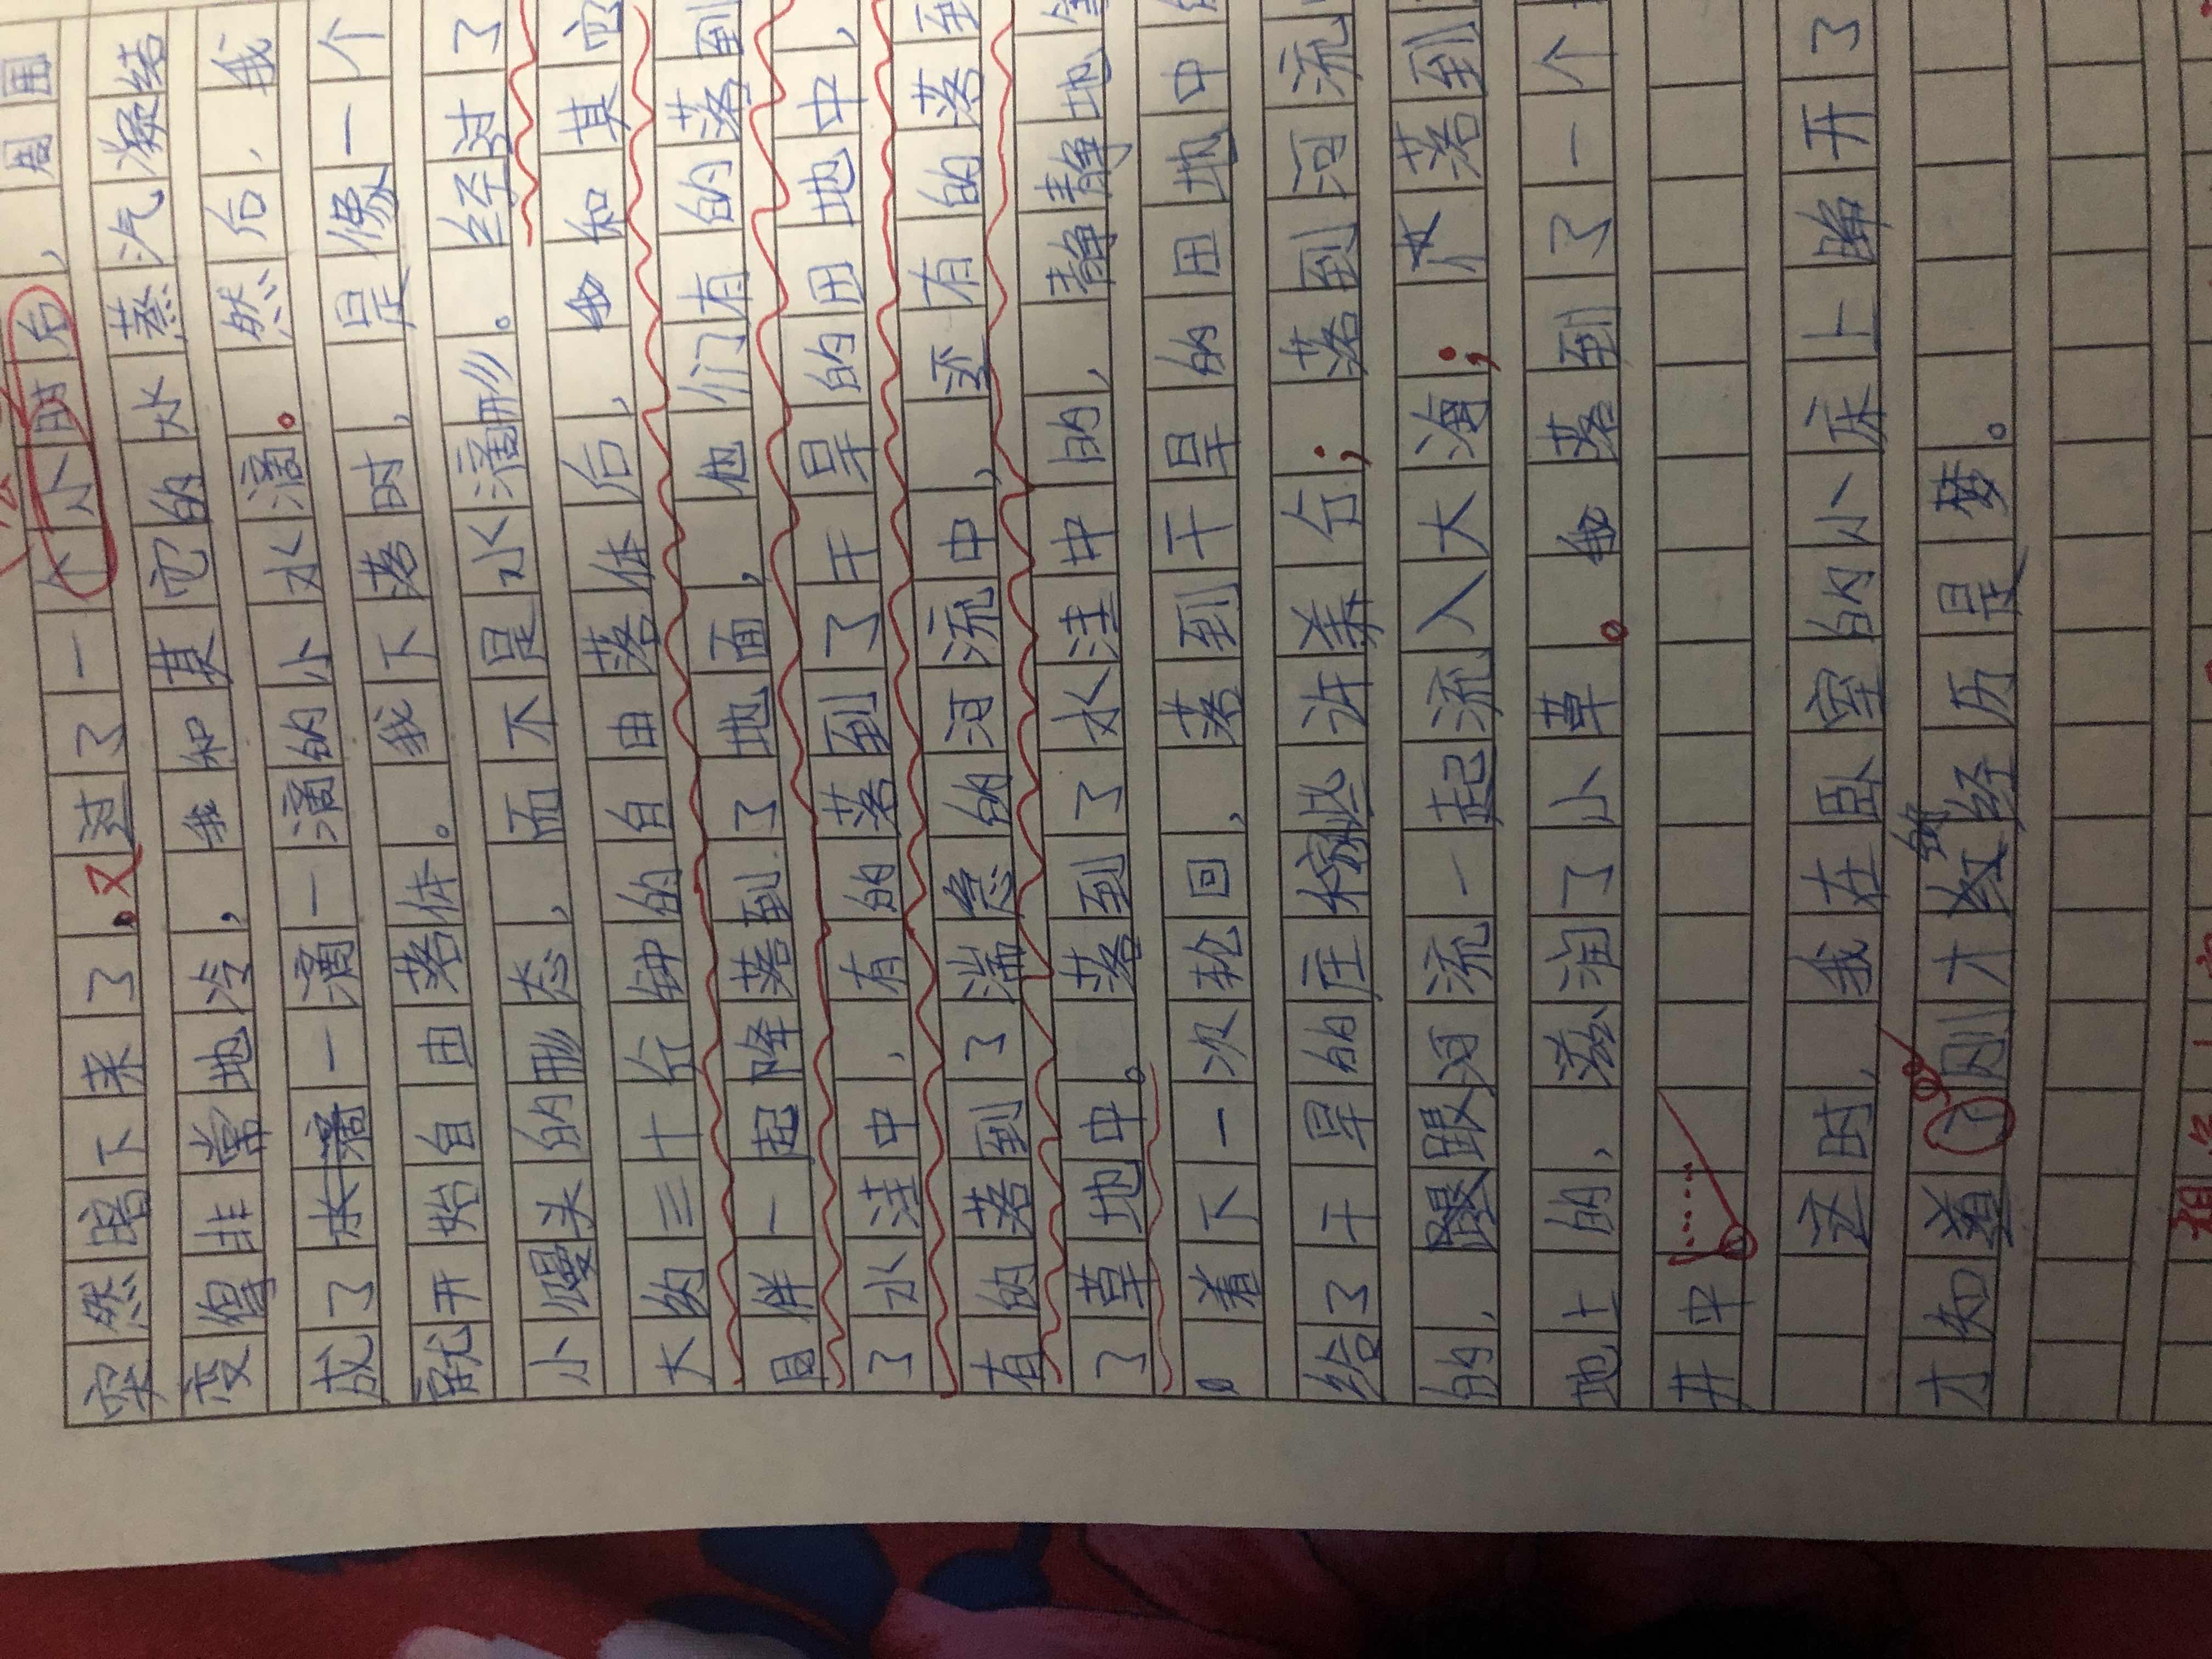 突然暗下来了，又过了一个小时后，周围
变得非常地冷，我和其它的水蒸汽凝结
成了水滴一滴一滴的小水滴。然后，我
就开始自由落体。我下落时，是像一个
小馒头的形态，而不是水滴形。经过了
大约三十分钟的自由落体后，我和其它
同伴一起降落到了地面，他们有的落到
了水洼中，有的落到了干旱的田地中，
有的落到了湍急的河流中，还有的落到
了草地中。落到了水洼中的，静静地
着下一次轮回，落到干旱的田地中
给了干旱的庄稼些许养分；落到河流
的，跟跟河流一起流入大海；落到
地上的，滋润了小草。我落到了一个
井中……
这时，我在卧室的小床上睁开了
才知道了刚才的经历是梦。